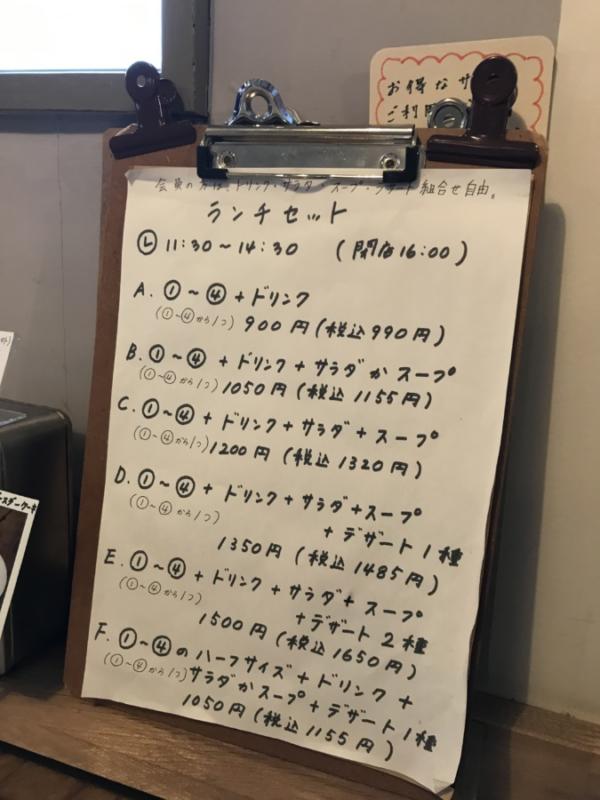 お得なサ
ご利用
会員の方は、ドリンク・サラダ・スープ・デザート組合せ自由。
ランチセット
Ⓛ 11:30～14:30 (閉店16:00)
A. ①～④+ドリンク
(①～④から1つ) 900円(税込990円)
B. ①～④+ドリンク+サラダかスープ
(①～④から1つ) 1050円(税込1155円)
C. ①～④+ドリンク+サラダ+スープ
(①～④から1つ) 1200円(税込1320円)
D. ①～④+ドリンク+サラダ+スープ
(①～④から1つ) +デザート1種
1350円(税込1485円)
E. ①～④+ドリンク+サラダ+スープ
(①～④から1つ) +デザート2種
1500円(税込1650円)
F. ①～④のハーフサイズ+ドリンク+
(①～④から1つ) サラダかスープ+デザート1種
1050円(税込1155円)